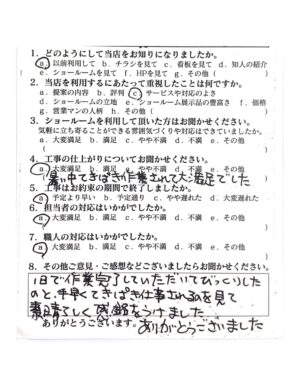 1. どのようにして当店をお知りになりましたか。
a. 以前利用して b. チラシを見て c. 看板を見て d. 知人の紹介
e. ショールームを見て f. HPを見て g. その他（ ）
2. 当店を利用するにあたって重視したことは何ですか。
a. 提案の内容 b. 評判 c. サービスや対応のよさ
d. ショールームの立地 e. ショールーム展示品の豊富さ f. 価格
g. 営業マンの人柄 h. その他（ ）
3. ショールームを利用して頂いた方はお聞かせください。
気軽に立ち寄ることができる雰囲気づくりや対応はできていましたか。
a. 大変満足 b. 満足 c. やや不満 d. 不満 e. その他
（ ）
4. 工事の仕上がりについてお聞かせください。
a. 大変満足 b. 満足 c. やや不満 d. 不満 e. その他
（暑い中てきぱき作業されてひ 満足でした
5. 工事はお約束の期間で終了しましたか。
a. 予定より早い b. 予定通り c. やや遅れた d. 大変遅れた
6. 担当者の対応はいかがでしたか。
a. 大変満足 b. 満足 c. やや不満 d. 不満 e. その他
（ ）
7. 職人の対応はいかがでしたか。
a. 大変満足 b. 満足 c. やや不満 d. 不満 e. その他
（ ）
8. その他ご意見・ご感想などございましたらお聞かせください。
1日で作業完了していただいてびっくりした
のと、手早くてきぱき仕事されるのを見て
素晴らしく感銘をうけました
ありがとうございます。 ありがとうございました